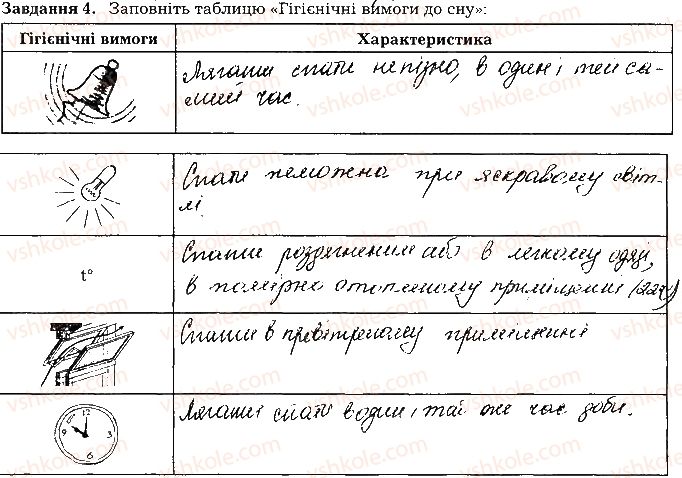 Завдання 4. Заповніть таблицю «Гігієнічні вимоги до сну»:
Гігієнічні вимоги Характеристика
Лягати спати не пізно, в один і той са-
мий час.
Спати неможна при яскравому світ-
лі.
t°
Спати роздягненим або в легкому одязі,
в помірно отопленому приміщенні (22°)
Спати в превітреному приміщенні
12
9 3
6
Лягати спати в один і той же час доби.
vshkole.com